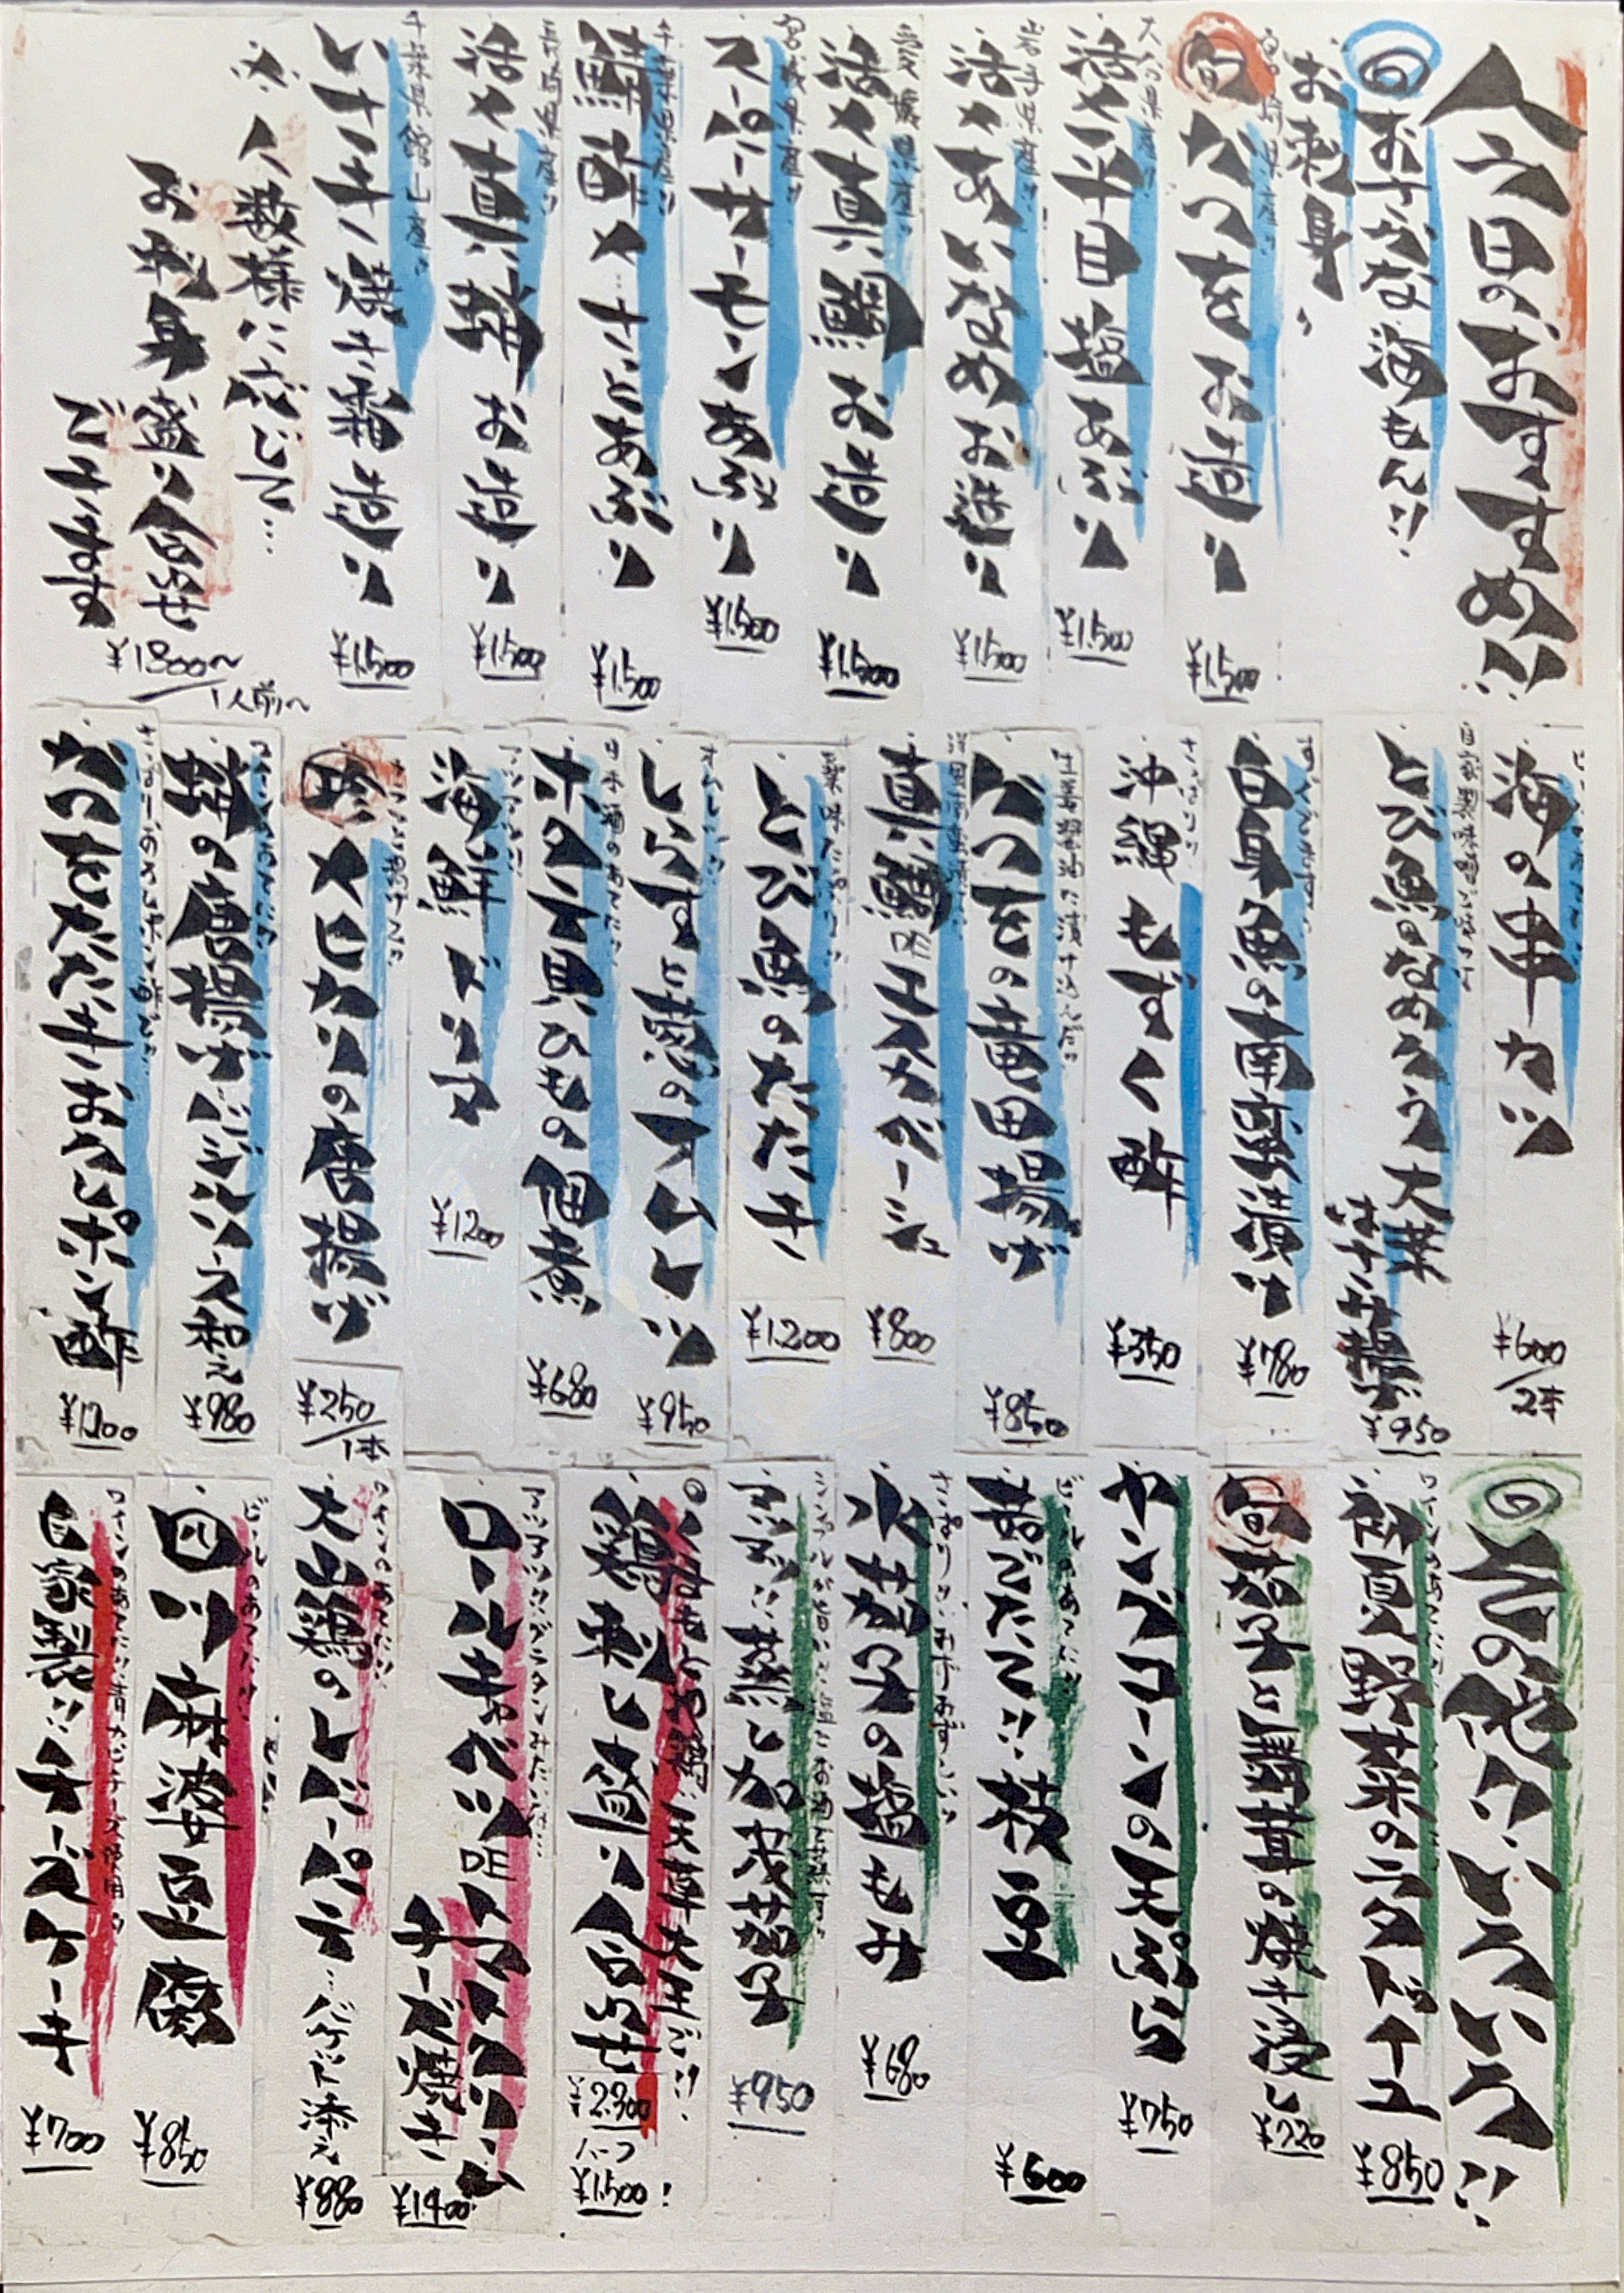 六日のおすすめ!!
旬おさかな海もん!!
お刺身、
宮崎県産!!
旬かつをお造り
¥1,500
大分県産!!
活〆平目塩あぶり
¥1,500
岩手県産!!
活〆あいなめお造り
¥1,500
愛媛県産!!
活〆真鯛お造り
¥1,500
宮城県産!!
スーパーサーモンあぶり
¥1,500
千葉県産!!
鯖酢〆…さっとあぶり
¥1,500
長崎県産!!
活〆真鯵お造り
¥1,500
千葉県館山産!!
いサキ焼き霜造り
¥1,500
※人数様に応じて…
お刺身盛り合せ
ございます
¥1800〜
1人前〜
海の串カツ
¥600/2本
自家製味噌
とび魚のなめろう大葉はさみ揚げ
¥950
白身魚の南蛮漬け
¥780
さっぱり!!
沖縄もずく酢
¥350
生姜醤油に漬け込んだ!!
かつをの竜田揚げ
¥850
真鯛のエスカベーシュ
¥800
薬味たっぷり!!
とび魚のたたき
¥1,200
オムレツ!!
しらすと葱のオムレツ
¥950
日本酒のあてに!!
ホタテ貝ひもの佃煮
¥680
アツアツ!!
海鮮ドリア
¥1200
珍メヒカリの唐揚げ
¥250/1本
ワインのあてに!!
蛸の唐揚げバジルソース和え
¥980
かつをたたきおろしポン酢
¥1,200
旬の野菜いろいろ!!
ワインのあてに!!
初夏野菜のラタトゥイユ
¥850
旬茄子と舞茸の焼き浸し
¥720
ヤングコーンの天ぷら
¥750
ビールのあてに!!
茹でたて!!枝豆
¥600
水茄子の塩もみ
¥680
アツアツ!!蒸し加茂茄子
¥950
鶏刺し盛り合わせ
天草大王!!
¥2,300
ハーフ
¥1,500!
ロールキャベツのトマトクリームチーズ焼き
¥1,400
ワインのあてに!!
大山鶏のレバーパテ…バゲット添え
¥880
ビールのあてに!!
四川麻婆豆腐
¥850
自家製!!チーズケーキ
¥700